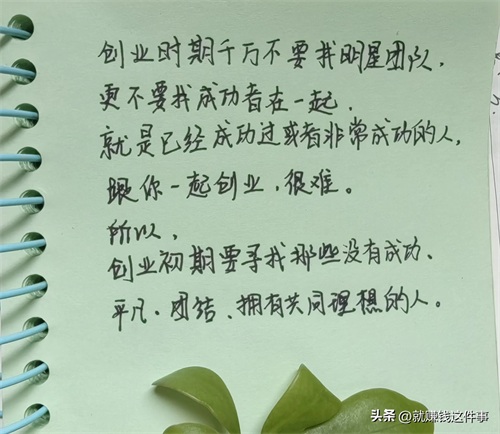 创业时期千万不要找明星团队,
更不要找成功者在一起.
就是已经成功过或者非常成功的人,
跟你一起创业,很难。
所以,
创业初期要寻找那些没有成功、
平凡.团结、拥有共同理想的人。
头条 @就赚钱这件事